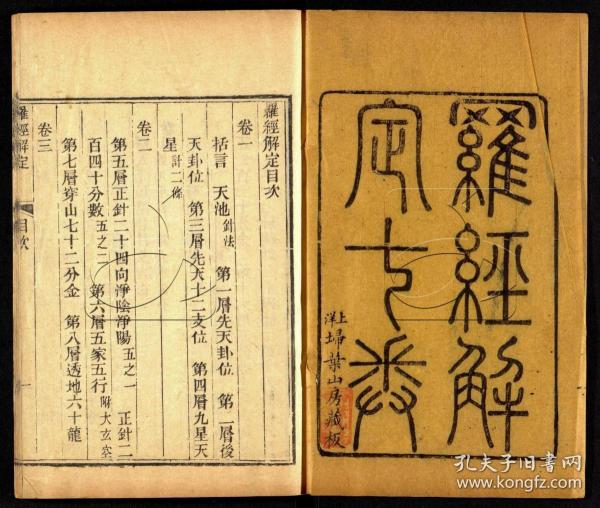 羅經解
定七卷
上洋埽葉山房藏板
羅經解定目次
卷一
括言　天池針法　第一層先天卦位　第二層後
天卦位　第三層先天十二支位　第四層九星天
星計二條
卷二
第五層正針二十四向淨陰淨陽五之一　正針二
百四十分數五之二　第六層五家五行附大玄空
第七層穿山七十二分金　第八層透地六十龍
卷三
羅經解定　目次　一
孔夫子旧书网
www.kongfz.com